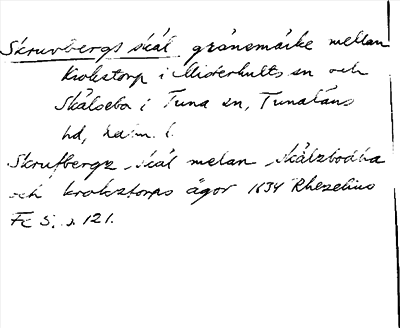 Skruvbergs skäl gränsmärke mellan
Krokstorp i Misterhults sn och
Skälsebo i Tuna sn, Tunaläns
hd, Kalm. l.
Skrufbergz skäl melan Skälzbodha
och krokstorps ägor 1634 Rhezelius
Fc 5, s. 121.